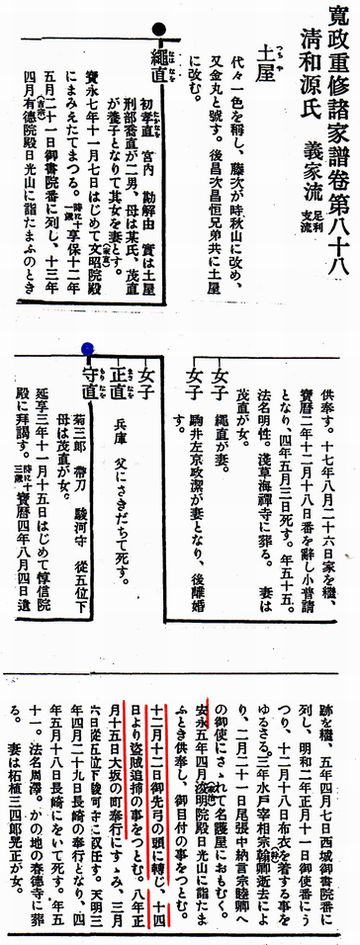 寬政重修諸家譜卷第八十八
清和源氏 義家流 足利支流
土屋
つちや
代々一色を稱し、藤次が時秋山に改め、
又金丸と號す。後昌次昌恒兄弟共に土屋
に改む。
繩直
なはなを
初孝直 宮内 勘解由 實は土屋
たかなを
刑部喬直が二男、母は某氏、茂直
が養子となりて其女を妻とす。
寶永七年十一月七日はじめて文昭院殿
(家宣)
にまみえたてまつる。時に十一歳享保十二年
五月二十一日御書院番に列し、十三年
四月有德院殿日光山に詣たまふのとき
(吉宗)
供奉す。十七年八月二十六日家を繼、
寶曆二年十二月十八日番を辭し小普請
となり、四年五月三日死す。年五十五。
法名明性。淺草海禪寺に葬る。 妻は
茂直が女。
女子
繩直が妻。
女子
駒井左京政潔が妻となり、後離婚
す。
女子
正直
まさなを
兵庫 父にさきだちて死す。
守直
もりなを
菊三郎 帶刀 駿河守 從五位下
母は茂直が女。
延享三年十一月十五日はじめて惇信院
殿に拜謁す。時に十三歳寶曆四年八月四日遺
跡を繼、五年四月七日西城御書院番に
列し、明和二年正月十一日御使番にう
つり、十二月十八日布衣を着する事を
ゆるさる。三年水戸宰相宗翰卿逝去によ
り、二月二十一日尾張中納言宗睦卿へ
の御使にさゝれて名護屋におもむく。
安永五年四月浚明院殿日光山に詣たま
ふとき供奉し、御目付の事をつとむ。
十二月十二日御先弓の頭に轉じ、十四
日より盜賊追捕の事をつとむ。八年正
月十五日大坂の町奉行にすゝみ、三月
六日從五位下駿河守に叙任す。天明三
年四月二十九日長崎の奉行となり、四
年五月十八日長崎にをいて死す。年五
十一。法名周澤。かの地の春德寺に葬
る。 妻は柘植三四郎晃正が女。